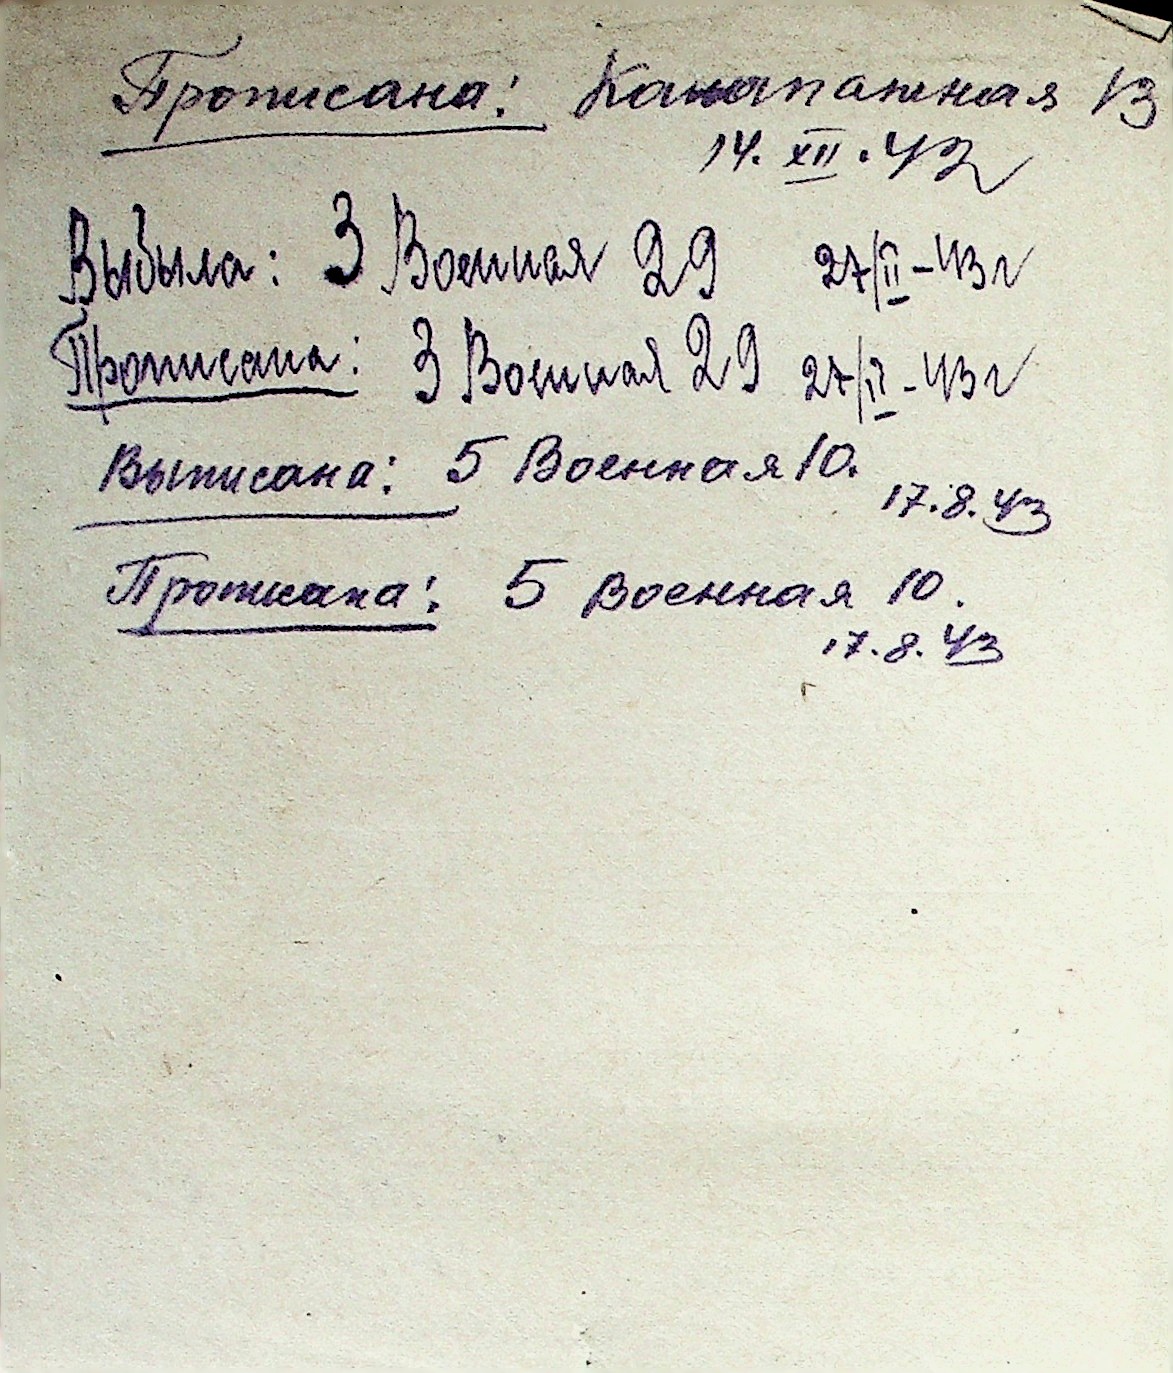 Прописана: Канапатная 13
14. XII. 42
Выбыла: 3 Военная 29 27/II-43 г
Прописана: 3 Военная 29 27/II-43 г
Выписана: 5 Военная 10.
17.8.43
Прописана: 5 Военная 10.
17.8.43